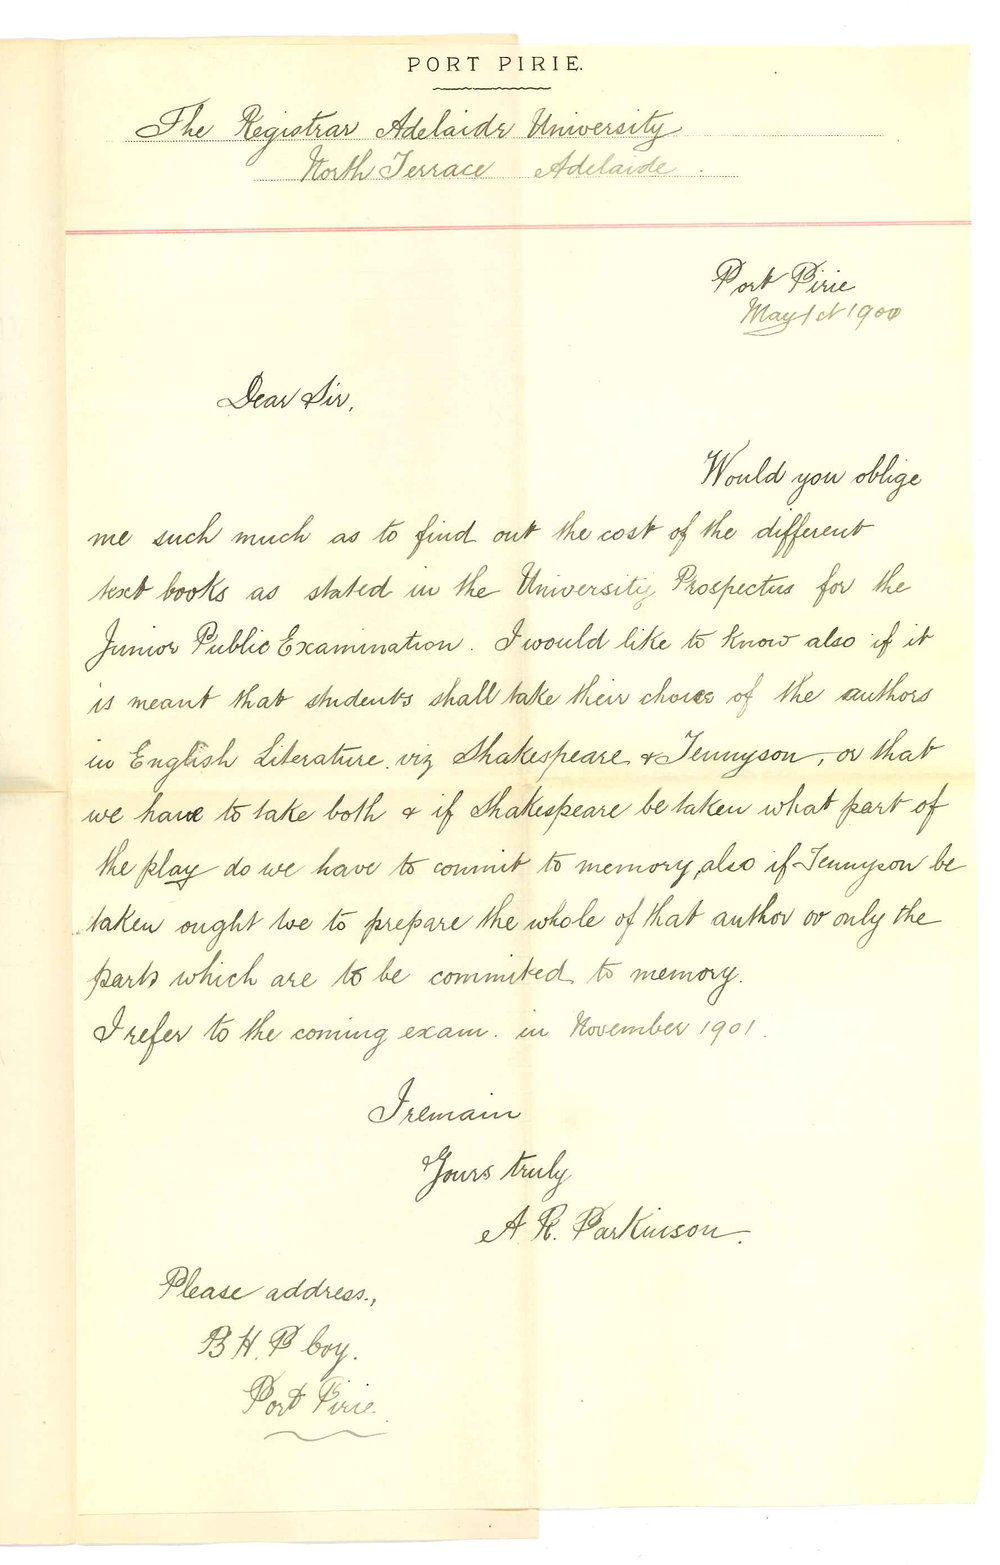 PORT PIRIE.
The Registrar Adelaide University
North Terrace Adelaide.
Port Pirie
May 1st 1900
Dear Sir,
Would you oblige
me such much as to find out the cost of the different
text books as stated in the University Prospectus for the
Junior Public Examination. I would like to know also if it
is meant that students shall take their choice of the authors
in English Literature. viz Shakespeare & Tennyson, or that
we have to take both & if Shakespeare be taken what part of
the play do we have to commit to memory, also if Tennyson be
taken ought we to prepare the whole of that author or only the
parts which are to be commited to memory.
I refer to the coming exam. in November 1901.
I remain
Yours truly
A R. Parkinson.
Please address,
B H. P Coy.
Port Pirie.